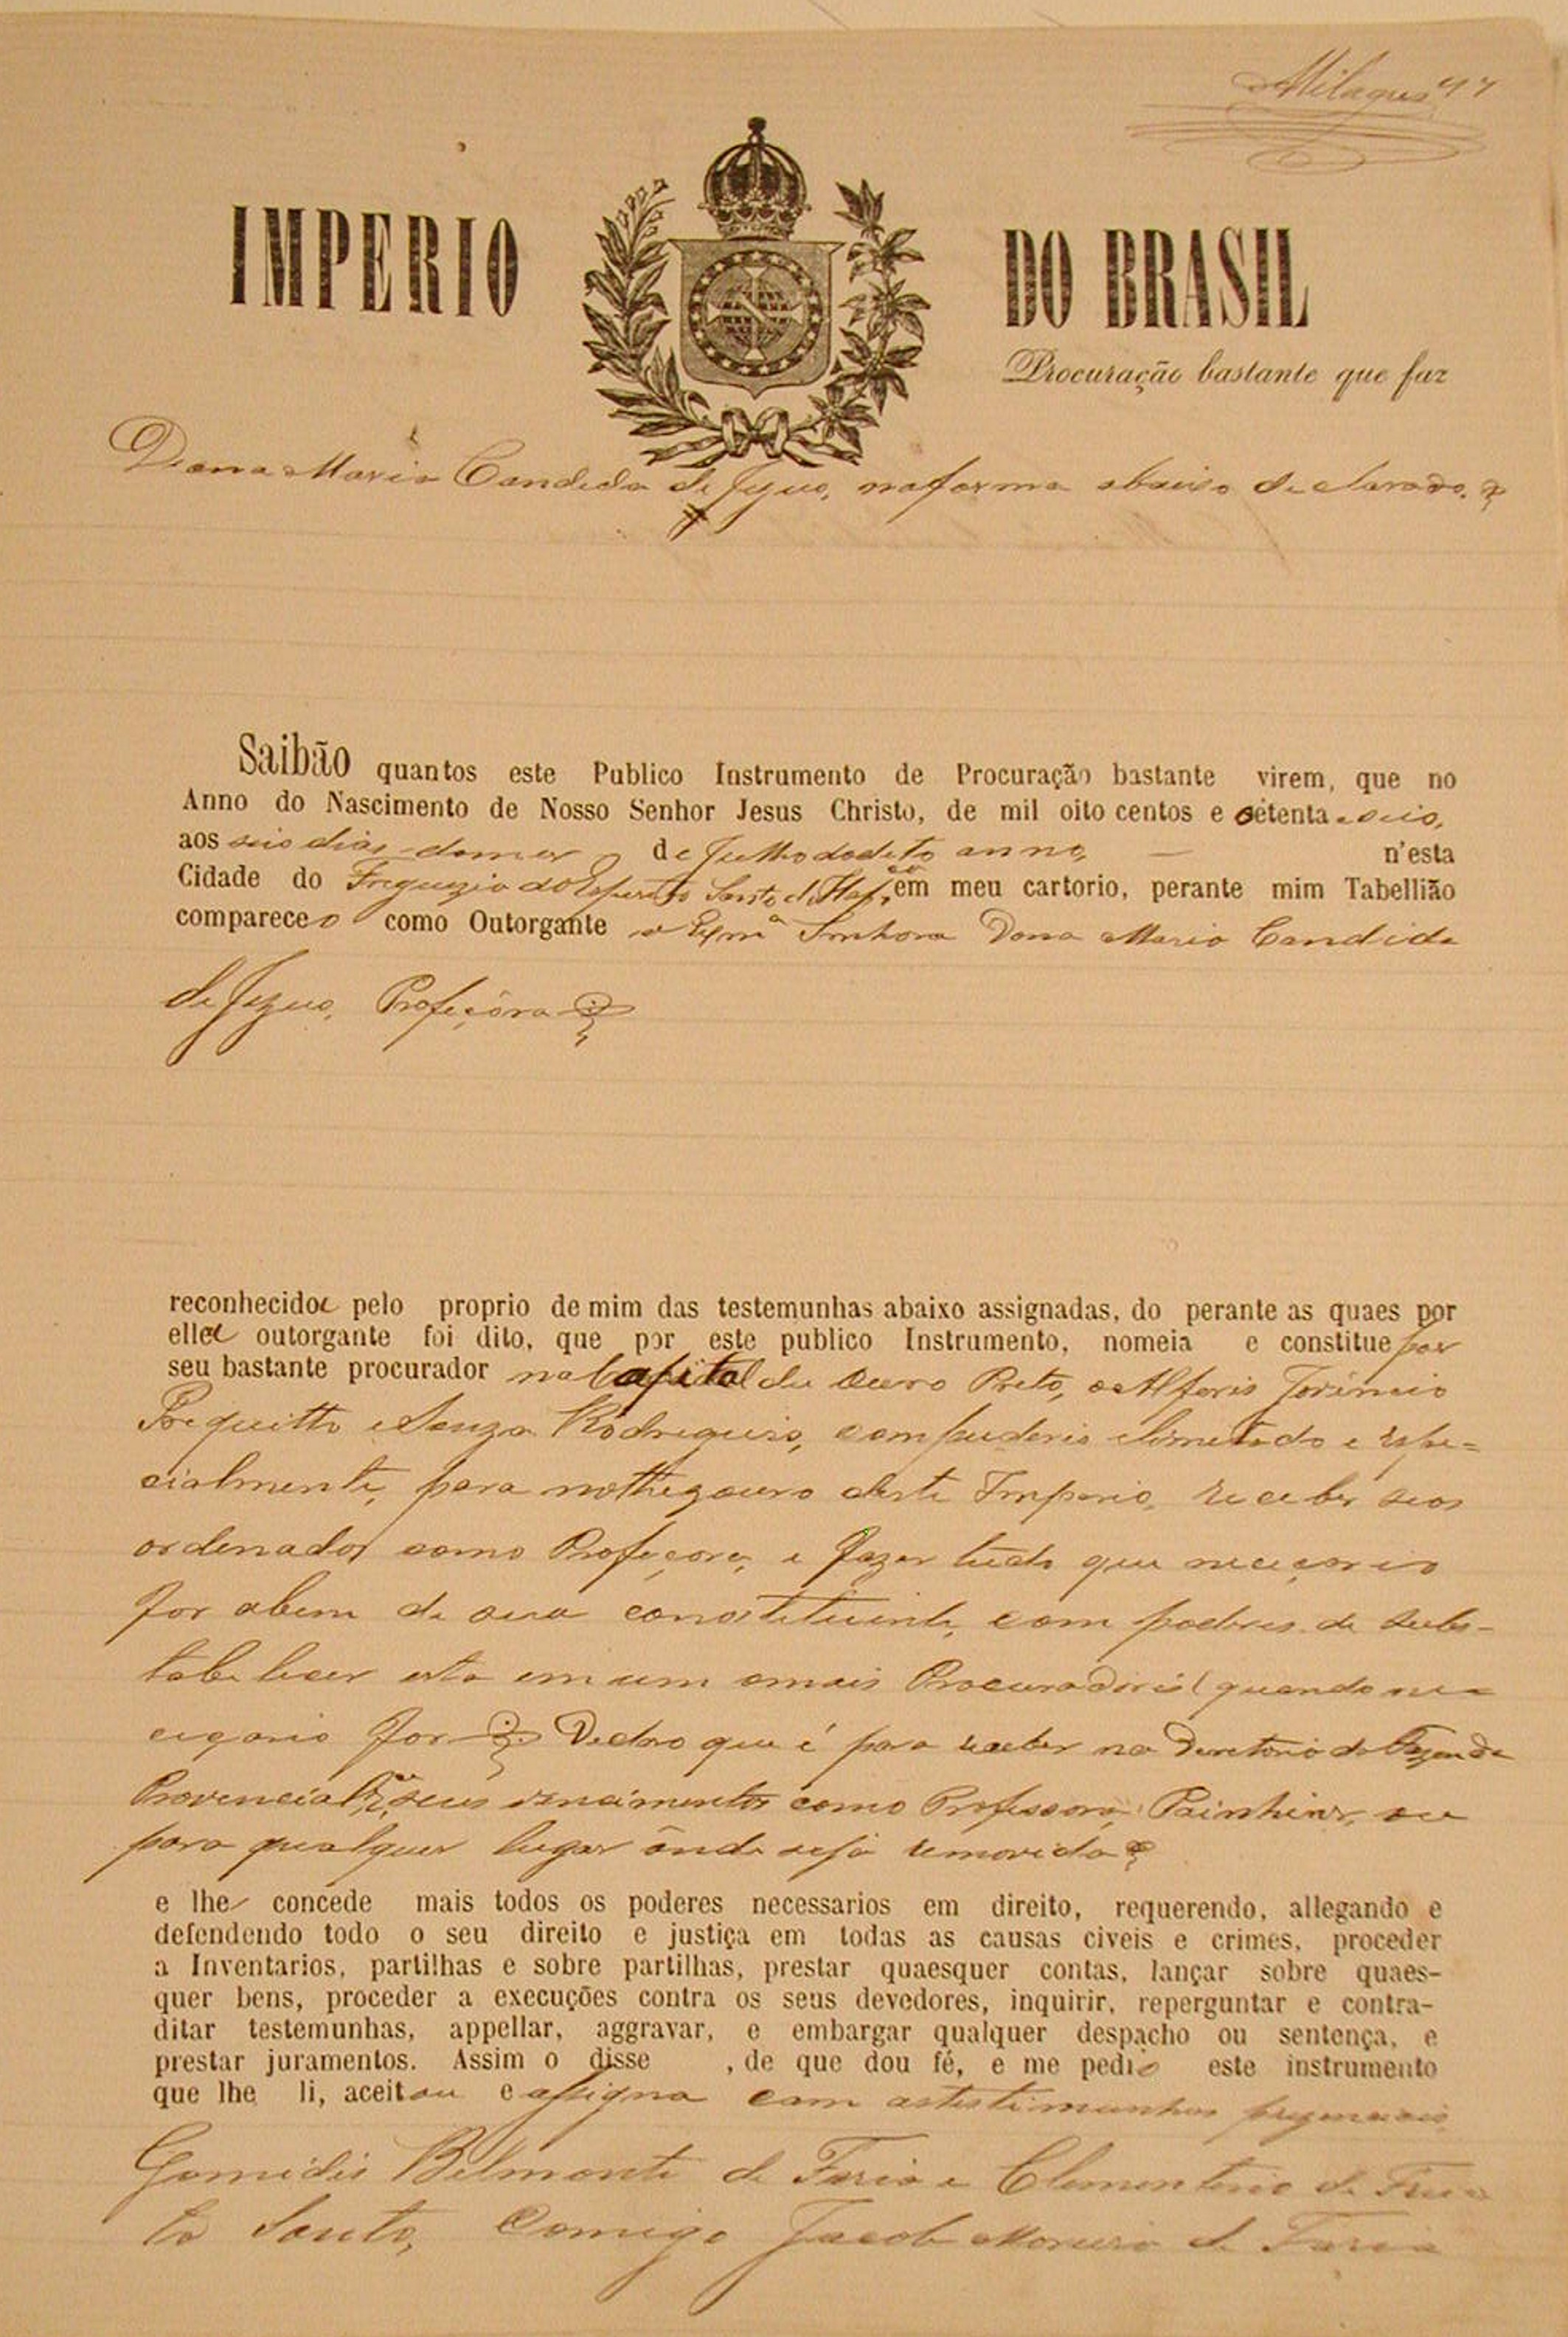 Milagres
IMPERIO DO BRASIL
Procuração bastante que faz
Dona Maria Candida de Jezus, na forma abaixo declarada.
Saibão quantos este Publico Instrumento de Procuração bastante virem, que no
Anno do Nascimento de Nosso Senhor Jesus Christo, de mil oito centos e setenta e seis,
aos seis dias do mez de Julho do dito anno, n'esta
Cidade do Freguezia do Espirito Santo do em meu cartorio, perante mim Tabellião
compareceo como Outorgante a Exmª Senhora Dona Maria Candida
de Jezus, Profeçôra
reconhecida pelo proprio de mim das testemunhas abaixo assignadas, do perante as quaes por
ella outorgante foi dito, que por este publico Instrumento, nomeia e constitue por
seu bastante procurador na Capital du Ouro Preto, o Alferis
e Souza Rodrigues, com puderis elimitado e espe=
cialmente, para no thezouro deste Imperio, receber seos
ordenados como Profeçora, e fazer tudo que neceçario
for abem de sua constituinte, com poderes de subs-
tabelecer esta em um omais Procuradoris quando ne=
ceçario for Declaro que é para receber na Diretoria da Fazenda
Provencial, seus vencimentos como Professora, ou
para qualquer lugar ônde seja removida
e lhe concede mais todos os poderes necessarios em direito, requerendo, allegando e
defendendo todo o seu direito e justiça em todas as causas civeis e crimes, proceder
a Inventarios, partilhas e sobre partilhas, prestar quaesquer contas, lançar sobre quaes-
quer bens, proceder a execuções contra os seus devedores, inquirir, reperguntar e contra-
ditar testemunhas, appellar, aggravar, e embargar qualquer despacho ou sentença, e
prestar juramentos. Assim o disse , de que dou fé, e me pedio este instrumento
que lhe li, aceitou e assigna com as testimunhas
Gomides Belmonte de Faria e Clementino de
to Santo, Comigo Jacob Moreira de Faria